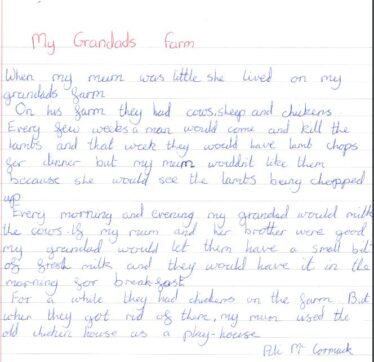 My Grandads Farm
When my mum was little she lived on my
grandads farm
On his farm they had cows, sheep and chickens
Every few weeks a man would come and kill the
lambs and that week they would have lamb chops
for dinner but my mum wouldn't like them
because she would see the lambs being chopped
up
Every morning and evening my grandad would milk
the cows. If my mum and her brother were good
my grandad would let them have a small bit
of fresh milk and they would have it in the
morning for breakfast
For a while they had chickens on the farm. But
when they got rid of there, my mum used the
old chicken house as a play-house
Mc Cormack